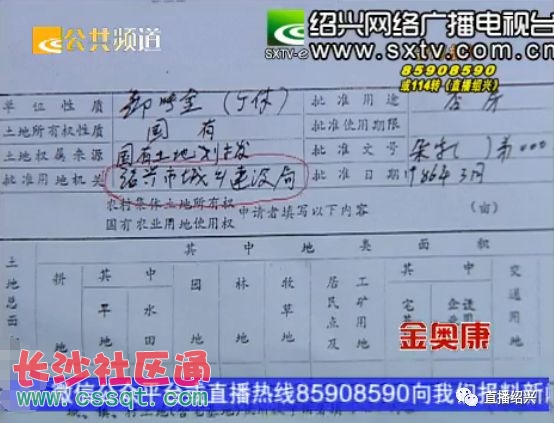 公共频道
绍兴网络广播电视台
SXTV-e
www.sxtv.com.cn
85908590
或114转(直播绍兴)
单位性质 (个体) 批准用途 住房
土地所有权性质 国有 批准使用期限
土地权属来源 国有土地划拨 批准文号 第000
批准用地机关 绍兴市城乡建设局 批准日期 1986年3月
农村集体土地所有权
国有农业用地使用权
申请者填写以下内容 (亩)
其中地类面积
土地总面
耕地
其中
旱地
水田
园地
林地
牧草地
居民点及
工矿用
其中
宅
企
交通用地
金奥康
长沙社区通
www.cssqt.com
微信公众平台或直播热线85908590向我们报料新闻
直播绍兴